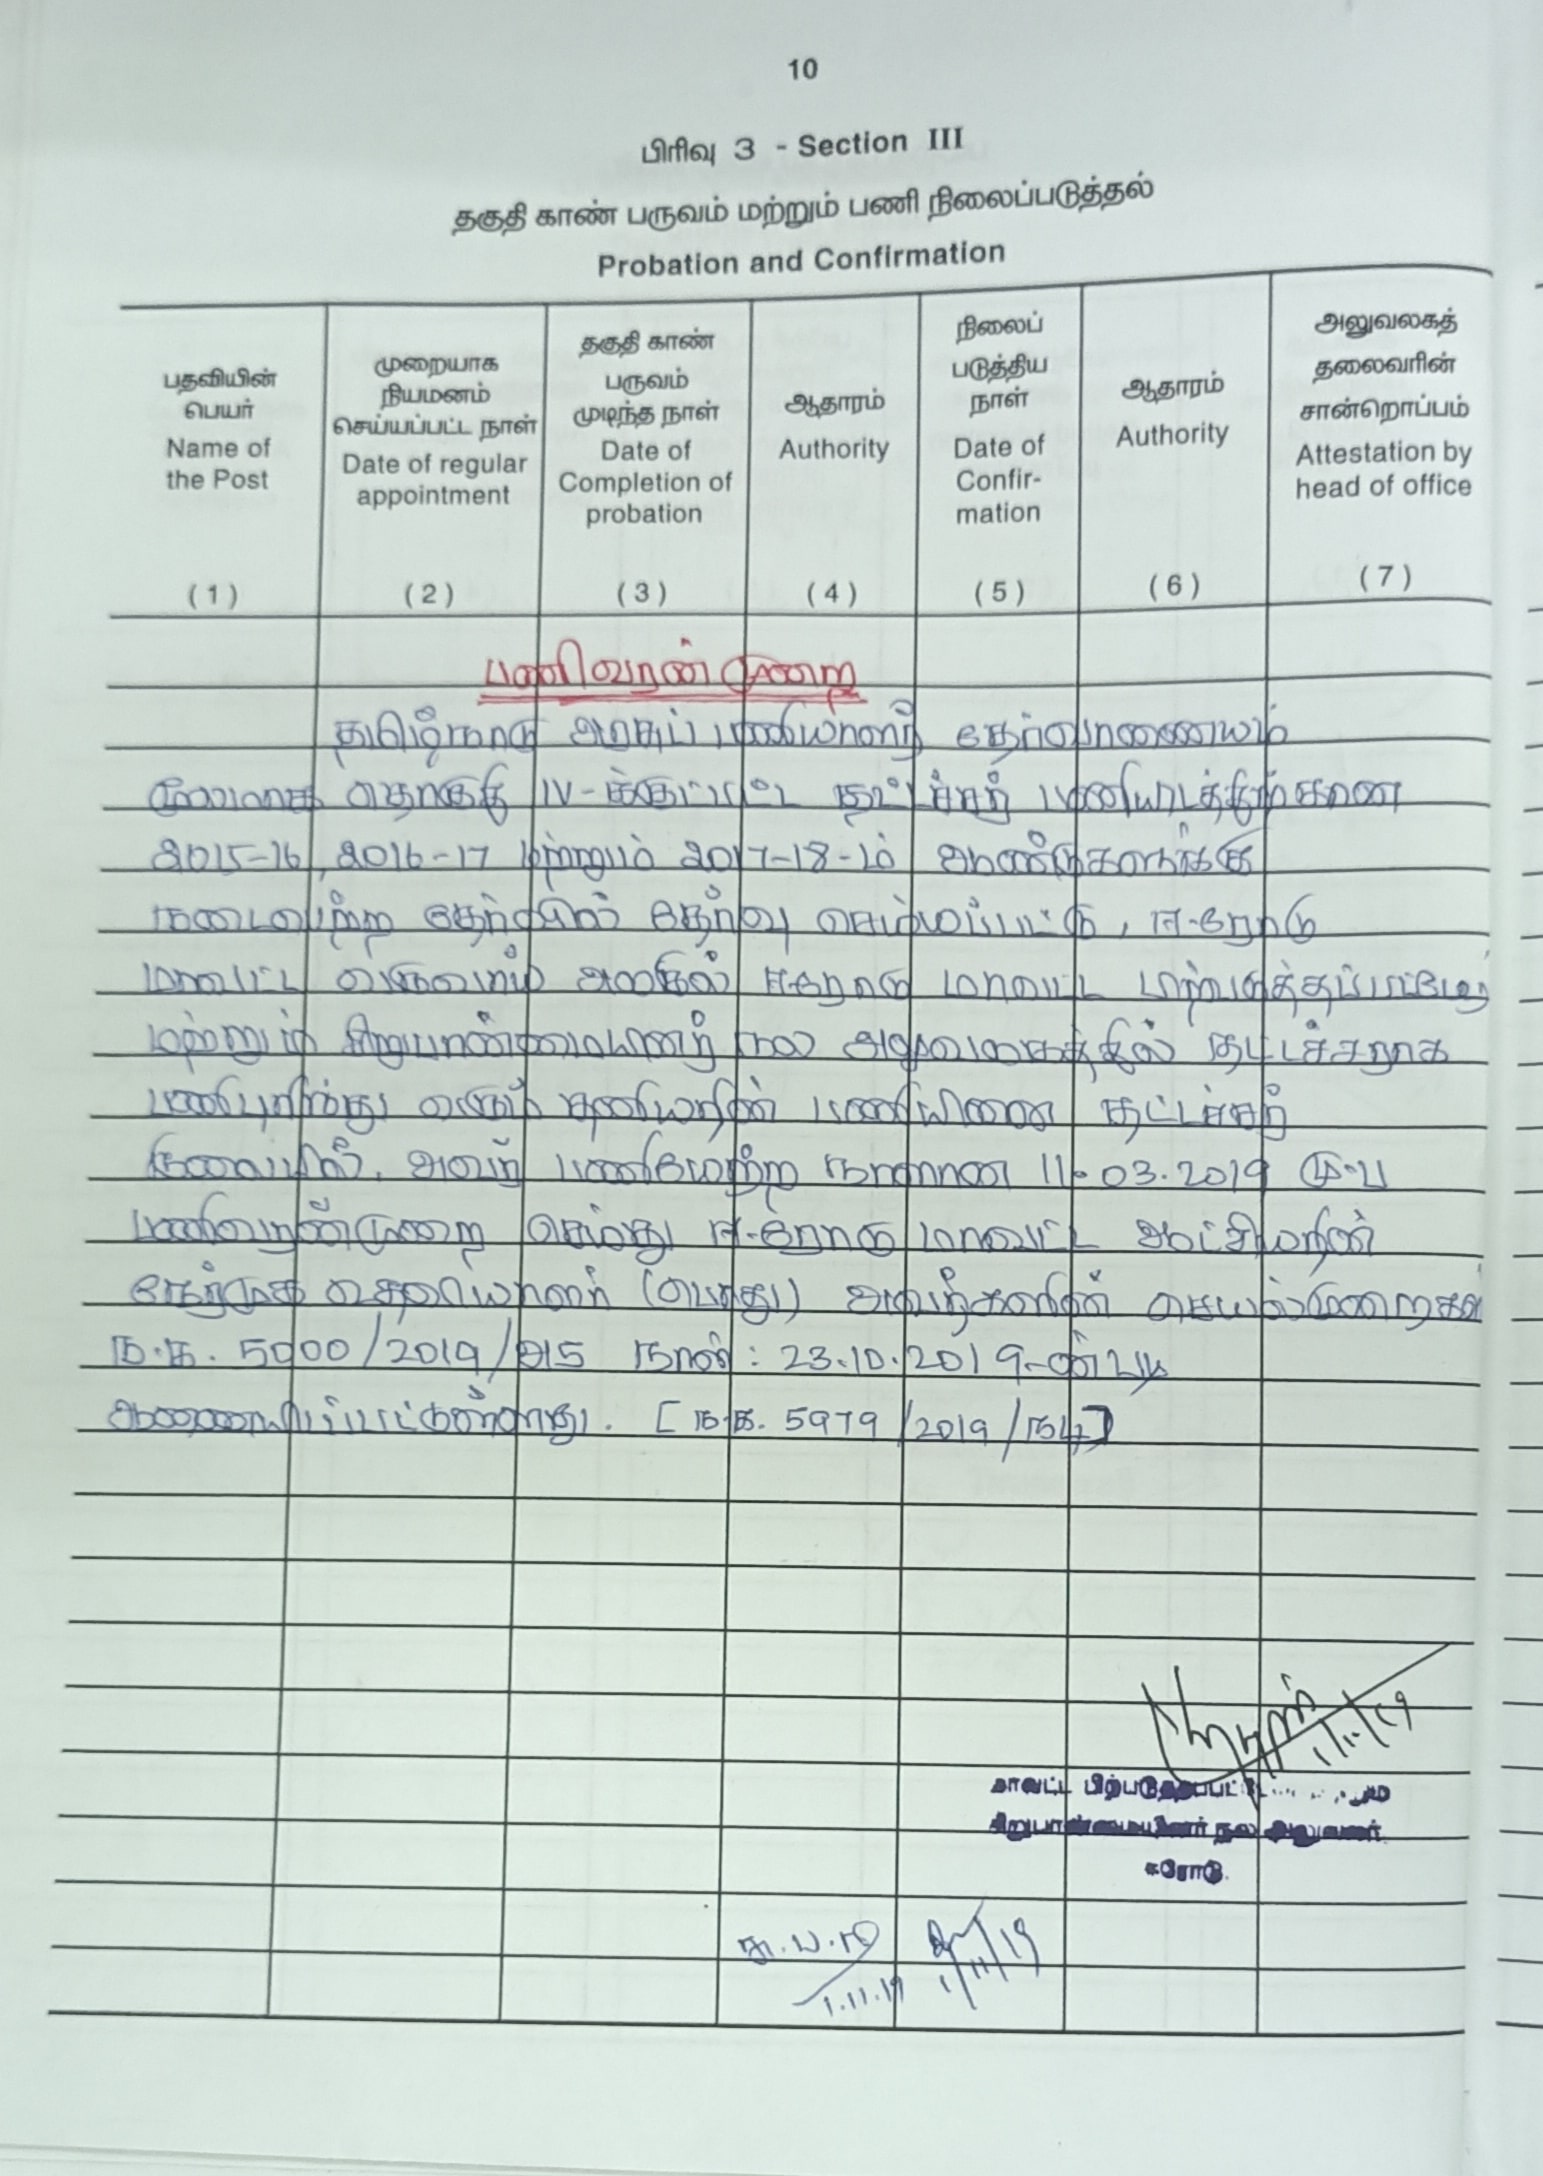 10
பிரிவு 3 - Section III
தகுதி காண் பருவம் மற்றும் பணி நிலைப்படுத்தல்
Probation and Confirmation
பதவியின் பெயர் Name of the Post (1)
முறையாக நியமனம் செய்யப்பட்ட நாள் Date of regular appointment (2)
தகுதி காண் பருவம் முடிந்த நாள் Date of Completion of probation (3)
ஆதாரம் Authority (4)
நிலைப் படுத்திய நாள் Date of Confir- mation (5)
ஆதாரம் Authority (6)
அலுவலகத் தலைவரின் சான்றொப்பம் Attestation by head of office (7)
பணிவரன்முறை
தமிழ்நாடு அரசுப் பணியாளர் தேர்வாணையம்
மூலமாக தொகுதி IV-க்குட்பட்ட தட்டச்சர் பணியிடத்திற்கான
2015-16, 2016-17 மற்றும் 2017-18-ம் ஆண்டுகளுக்கு
நடைபெற்ற தேர்வில் தேர்வு செய்யப்பட்டு, ஈ-ரோடு
மாவட்ட வருவாய் அலகில் ஈரோடு மாவட்ட பிற்படுத்தப்பட்டோர்
மற்றும் சிறுபான்மையினர் நல அலுவலகத்தில் தட்டச்சராக
பணிபுரிந்து வரும் தனியரின் பணியினை தட்டச்சர்
நிலையில், அவர் பணியேற்ற நாளான 11.03.2019 மு.ப
பணிவரன்முறை செய்து ஈ-ரோடு மாவட்ட ஆட்சியரின்
நேர்முக உதவியாளர் (பொது) அவர்களின் செயல்முறைகள்
ந.க. 5000/2019/அ5 நாள்: 23.10.2019-ன்படி
ஆணையிடப்பட்டுள்ளது. [ந.க. 5979/2019/ந4]
1/11/19
மாவட்ட பிற்படுத்தப்பட்
சிறுபான்மையினர் நல அலுவலர்
ஈரோடு.
1.11.19
1/11/19